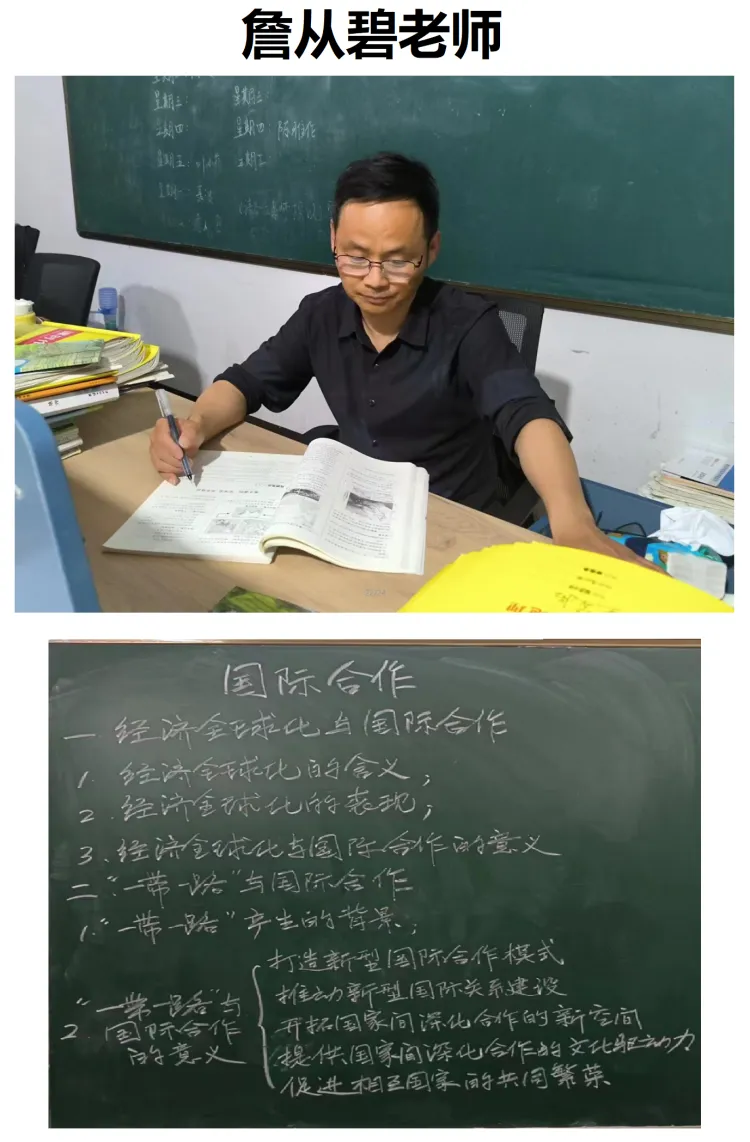 詹从碧老师
星期三： 星期三：
星期四： 星期四：
星期五： 星期五
国际合作
一.经济全球化与国际合作
1.经济全球化的含义；
2.经济全球化的表现；
3.经济全球化与国际合作的意义
二."一带一路"与国际合作
1."一带一路"产生的背景；
2."一带一路"与国际合作的意义
打造新型国际合作模式
推动新型国际关系建设
开拓国家间深化合作的新空间
提供国家间深化合作的文化驱动力
促进相互国家的共同繁荣